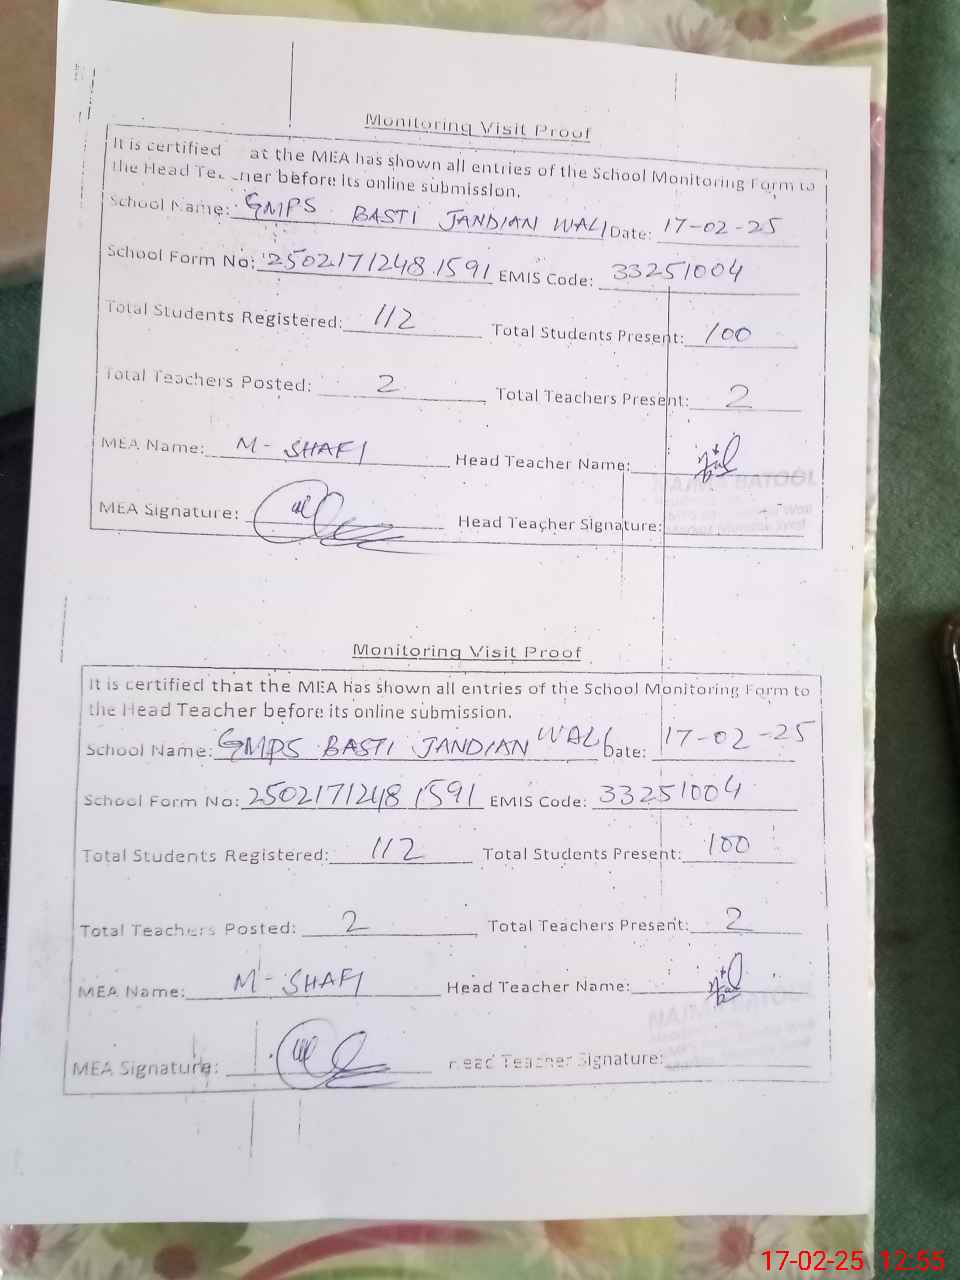 Monitoring Visit Proof
It is certified at the MEA has shown all entries of the School Monitoring Form to
the Head Te ner before its online submission.
School Name: GMPS BASTI JANDIAN WALI Date: 17-02-25
School Form No: 2502171248 1591 EMIS Code: 33251004
Total Students Registered: 112 Total Students Present: 100
Total Teachers Posted: 2 Total Teachers Present: 2
MEA Name: M-SHAFI Head Teacher Name:
NAJMA BATOOL
MEA Signature: Head Teacher Signature:
Monitoring Visit Proof
It is certified that the MEA has shown all entries of the School Monitoring Form to
the Head Teacher before its online submission.
School Name: GMPS BASTI JANDIAN WALI Date: 17-02-25
School Form No: 2502171248 1591 EMIS Code: 33251004
Total Students Registered: 112 Total Students Present: 100
Total Teachers Posted: 2 Total Teachers Present: 2
MEA Name: M-SHAFI Head Teacher Name:
NAJMA BATOOL
MEA Signature: Head Teacher Signature:
17-02-25 12:55